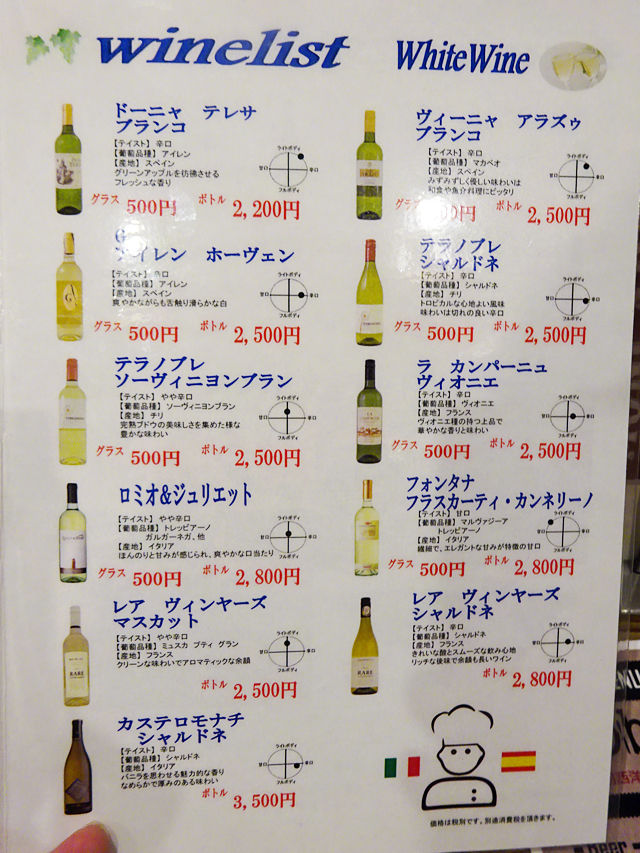 winelist
White Wine
ドーニャ テレサ
ブランコ
【テイスト】辛口
【葡萄品種】アイレン
【産地】スペイン
グリーンアップルを彷彿させる
フレッシュな香り
ライトボディ
甘口
辛口
フルボディ
グラス 500円 ボトル 2,200円
ヴィーニャ アラズゥ
ブランコ
【テイスト】辛口
【葡萄品種】マカベオ
【産地】スペイン
みずみずしく優しい味わいは
和食や魚介料理にピッタリ
ライトボディ
甘口
辛口
フルボディ
グラス 円 ボトル 2,500円
G
アイレン ホーヴェン
【テイスト】辛口
【葡萄品種】アイレン
【産地】スペイン
爽やかながらも舌触り滑らかな白
ライトボディ
甘口
辛口
フルボディ
グラス 500円 ボトル 2,500円
テラノブレ
シャルドネ
【テイスト】辛口
【葡萄品種】シャルドネ
【産地】チリ
トロピカルな心地よい風味
味わいは切れの良い辛口
ライトボディ
甘口
辛口
フルボディ
グラス 500円 ボトル 2,500円
テラノブレ
ソーヴィニヨンブラン
【テイスト】やや辛口
【葡萄品種】ソーヴィニヨンブラン
【産地】チリ
完熟ブドウの美味しさを集めた様な
豊かな味わい
ライトボディ
甘口
辛口
フルボディ
グラス 500円 ボトル 2,500円
ラ カンパーニュ
ヴィオニエ
【テイスト】辛口
【葡萄品種】ヴィオニエ
【産地】フランス
ヴィオニエ種の持つ上品で
華やかな香りと味わい
ライトボディ
甘口
辛口
フルボディ
グラス 500円 ボトル 2,500円
ロミオ&ジュリエット
【テイスト】やや辛口
【葡萄品種】トレッビアーノ
ガルガーネガ、他
【産地】イタリア
ほんのりと甘みが感じられ、爽やかな口当たり
ライトボディ
甘口
辛口
フルボディ
グラス 500円 ボトル 2,800円
フォンタナ
フラスカーティ・カンネリーノ
【テイスト】甘口
【葡萄品種】マルヴァジーア
トレッビアーノ
【産地】イタリア
繊細で、エレガントな甘みが特徴の甘口
ライトボディ
甘口
辛口
フルボディ
グラス 500円 ボトル 2,800円
レア ヴィンヤーズ
マスカット
【テイスト】やや辛口
【葡萄品種】ミュスカ プティ グラン
【産地】フランス
クリーンな味わいでアロマティックな余韻
ライトボディ
甘口
辛口
フルボディ
ボトル 2,500円
レア ヴィンヤーズ
シャルドネ
【テイスト】辛口
【葡萄品種】シャルドネ
【産地】フランス
きれいな酸とスムーズな飲み心地
リッチな後味で余韻も長いワイン
ライトボディ
甘口
辛口
フルボディ
ボトル 2,800円
カステロモナチ
シャルドネ
【テイスト】辛口
【葡萄品種】シャルドネ
【産地】イタリア
バニラを思わせる魅力的な香り
なめらかで厚みのある味わい
ライトボディ
甘口
辛口
フルボディ
ボトル 3,500円
価格は税別です。別途消費税を頂きます。
beer